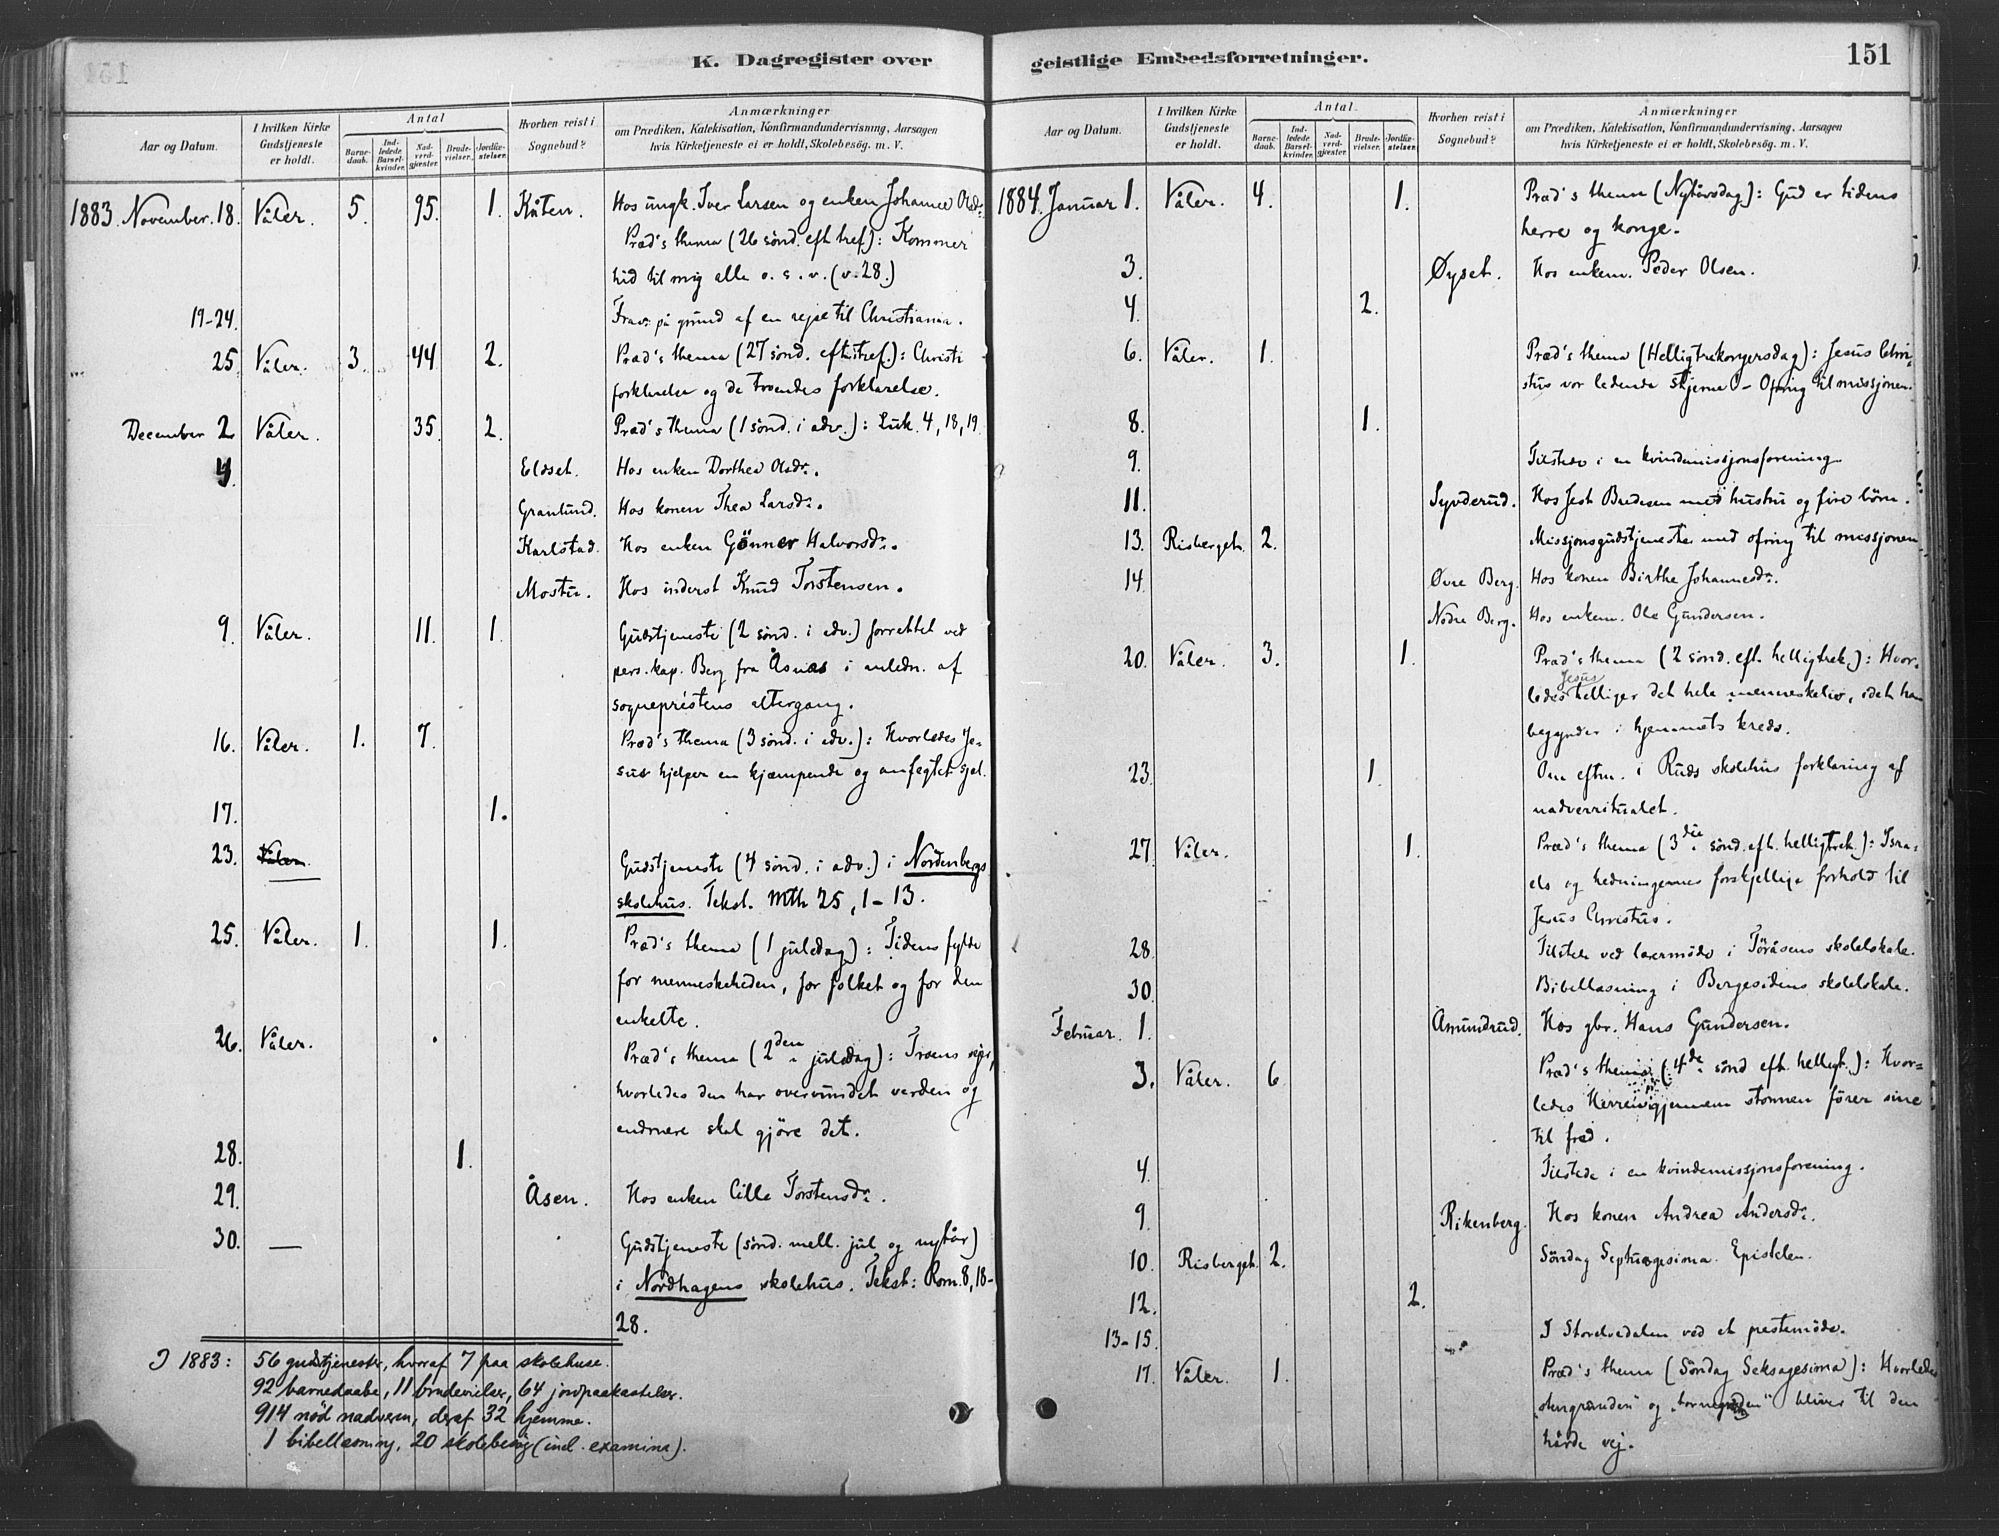 K. Dagregister over
Aar og Datum.
I hvilken Kirke Gudstjeneste er holdt.
Antal
Barnedaab.
Indledede Barselkvinder.
Nadverdgjester.
Brudevielser.
Jordfæstelser.
Hvorhen reist i Sognebud?
Anmærkninger
om Prædiken, Katekisation, Konfirmandundervisning, Aarsagen
hvis Kirketjeneste ei er holdt, Skolebesøg. m. V.
1883. November. 18. Våler. 5. 95. 1. Kåten. Hos ungk. Iver Larsen og enken Johanne Olsdr.
Præd's thema (26 sønd. eft. tref.): Kommer
hid til mig alle o. s. v. (v. 28.)
19-24. Frav. på grund af en rejse til Christiania.
25. Våler. 3. 44. 2. Præd's thema (27 sønd. eft. tref.): Christi
forklarelse og de troendes forklarelse.
December 2. Våler. 35. 2. Præd's thema (1 sønd. i adv.): Luk. 4, 18, 19.
4. Eldset. Hos enken Dorthea Olsdr.
Granlund. Hos konen Thea Larsdr.
Karlstad. Hos enken Gønner Halvorsdr.
Mostu. Hos inderst Knud Torstensen.
9. Våler. 11. 1. Gudstjeneste (2 sønd. i adv.) forrettet ved
pers. kap. Berg fra Åsnæs i anledn. af
sogneprestens altergang.
16. Våler. 1. 7. Præd's thema (3 sønd. i adv.): Hvorledes Je-
sus hjelper en kjæmpende og anfegtet sjæl.
17. 1.
23. Våler. Gudstjeneste (4 sønd. i adv.) i Nordenbergs
skolehus. Tekst. Mth 25, 1-13.
25. Våler. 1. 1. Præd's thema (1 juledag): Tidens fylde
for menneskeheden, for folket og for den
enkelte.
26. Våler. Præd's thema (2den juledag): Troens sejr,
hvorledes den har overvundet verden og
endmere skal gjöre det.
28. 1.
29. Åsen. Hos enken Cille Torstensdr.
30. — Gudstjeneste (sønd. mell. jul og nytår)
i Nordhagens skolehus. Tekst: Rom. 8, 18-
28.
I 1883: 56 gudstjenester, hvoraf 7 paa skolehuse.
92 barnedaabe, 11 brudevielser, 64 jordpaakastelser.
914 nöd nadveren, deraf 32 hjemme.
1 bibellæsning, 20 skolebesög (incl. examina).
geistlige Embedsforretninger.
151
Aar og Datum.
I hvilken Kirke Gudstjeneste er holdt.
Antal.
Barnedaab.
Indledede Barselkvinder.
Nadverdgjester.
Brudevielser.
Jordfæstelser.
Hvorhen reist i Sognebud?
Anmærkninger
om Prædiken, Katekisation, Konfirmandundervisning, Aarsagen
hvis Kirketjeneste ei er holdt, Skolebesøg. m. V.
1884. Januar 1. Våler. 4. 1. Præd's thema (Nytårsdag): Gud er tidens
herre og konge.
3. Øyset. Hos enkem. Peder Olsen.
4. 2.
6. Våler. 1. Præd's thema (Helligtrekongersdag): Jesus Chri-
stus vor ledende stjerne! - Ofring til missjonen.
8. 1.
9. Tilstede i en kvindemissjonsforening.
11. Syvderud. Hos Jesh Bredesen med hustru og fire börn.
13. Risberget. 2. Missjonsgudstjeneste med ofring til missjonen
14. Øvre Berg. Hos konen Birthe Johannesdr.
Nedre Berg. Hos enkem. Ole Gundersen.
20. Våler. 3. 1. Præd's thema (2 sønd. eft. helligtrek.): Hvor-
ledes Jesus helliger det hele menneskeliv, idet han
begynder i hjemmets kreds.
23. 1. Om eftm. i Ruds skolehus forklaring af
nadverritualet.
27. Våler. 1. Præd's thema (3die sønd. eft. helligtrek.): Isra-
els og hedningernes forskjellige forhold til
Jesus Christus.
28. Tilstede ved lærermöde i Töråsens skolelokale.
30. Bibellæsning i Bergesidens skolelokale.
Februar. 1. Amundrud. Hos gbr. Hans Gundersen.
3. Våler. 6. Præd's thema (4de sønd eft. helligt.): Hvor-
ledes Herren gjennem stormen förer sine
til fred.
4. Tilstede i en kvindemissjonsforening.
9. Rikenberg. Hos konen Andrea Andersdr.
10. Risberget. 2. Söndag Septuagesima. Epistelen.
12. 2.
13-15. I Storelvedalen ved et prestemöde.
17. Våler. 1. Præd's thema (Söndag Seksagesima): Hvorledes
"stengrunden" og "tornegrunden" bliver til den
hårde vej.